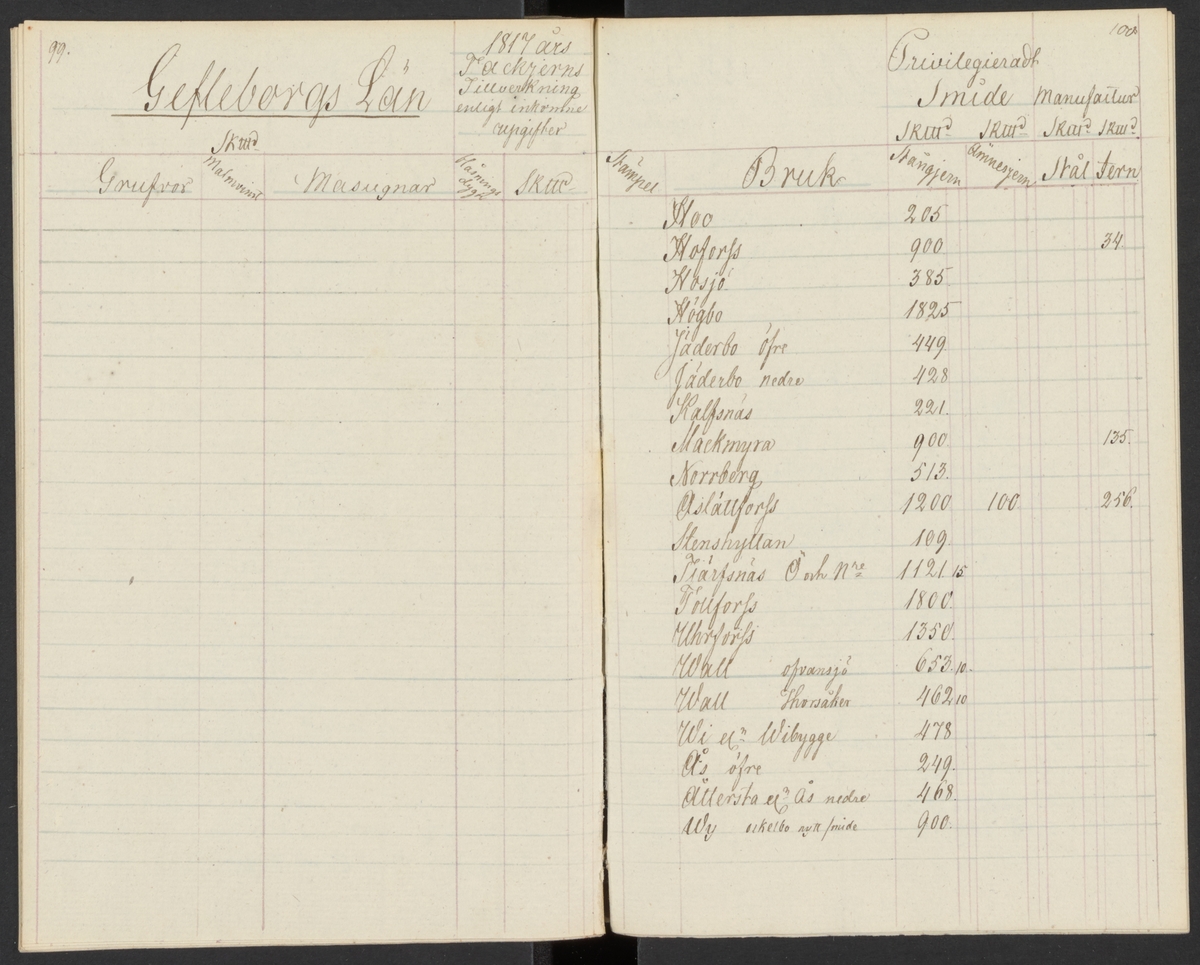 99.
Gefleborgs Län
1817 års
Tackjerns
Tillverkning
enligt inkomne
uppgifter
Skttd
Grufvor
Malmvinst
Masugnar
Blåsnings
dygn
Skttd
100
Privilegieradt
Smide Manufactur
Skttd Skttd Skttd Skttd
Stämpel Bruk Stångjern Ämnesjern Stål Jern
Hoo 205
Hoforss 900 34.
Hosjö 385
Högbo 1825
Jäderbo öfre 449
Jäderbo nedre 428
Kalfsnäs 221.
Mackmyra 900 135.
Norrberg 513.
Oslättforss 1200 100 256.
Stenshyttan 109.
Tjärfsnäs Ö och Nre 1121 15
Tollforss 1800.
Uhrforss 1350.
Wall ofvansjö 653. 10.
Wall Thorsåker 462 10
Wi elr Wibygge 478
Ås öfre 249.
Ållersta elr Ås nedre 468.
Wy ockelbo nytt smide 900.